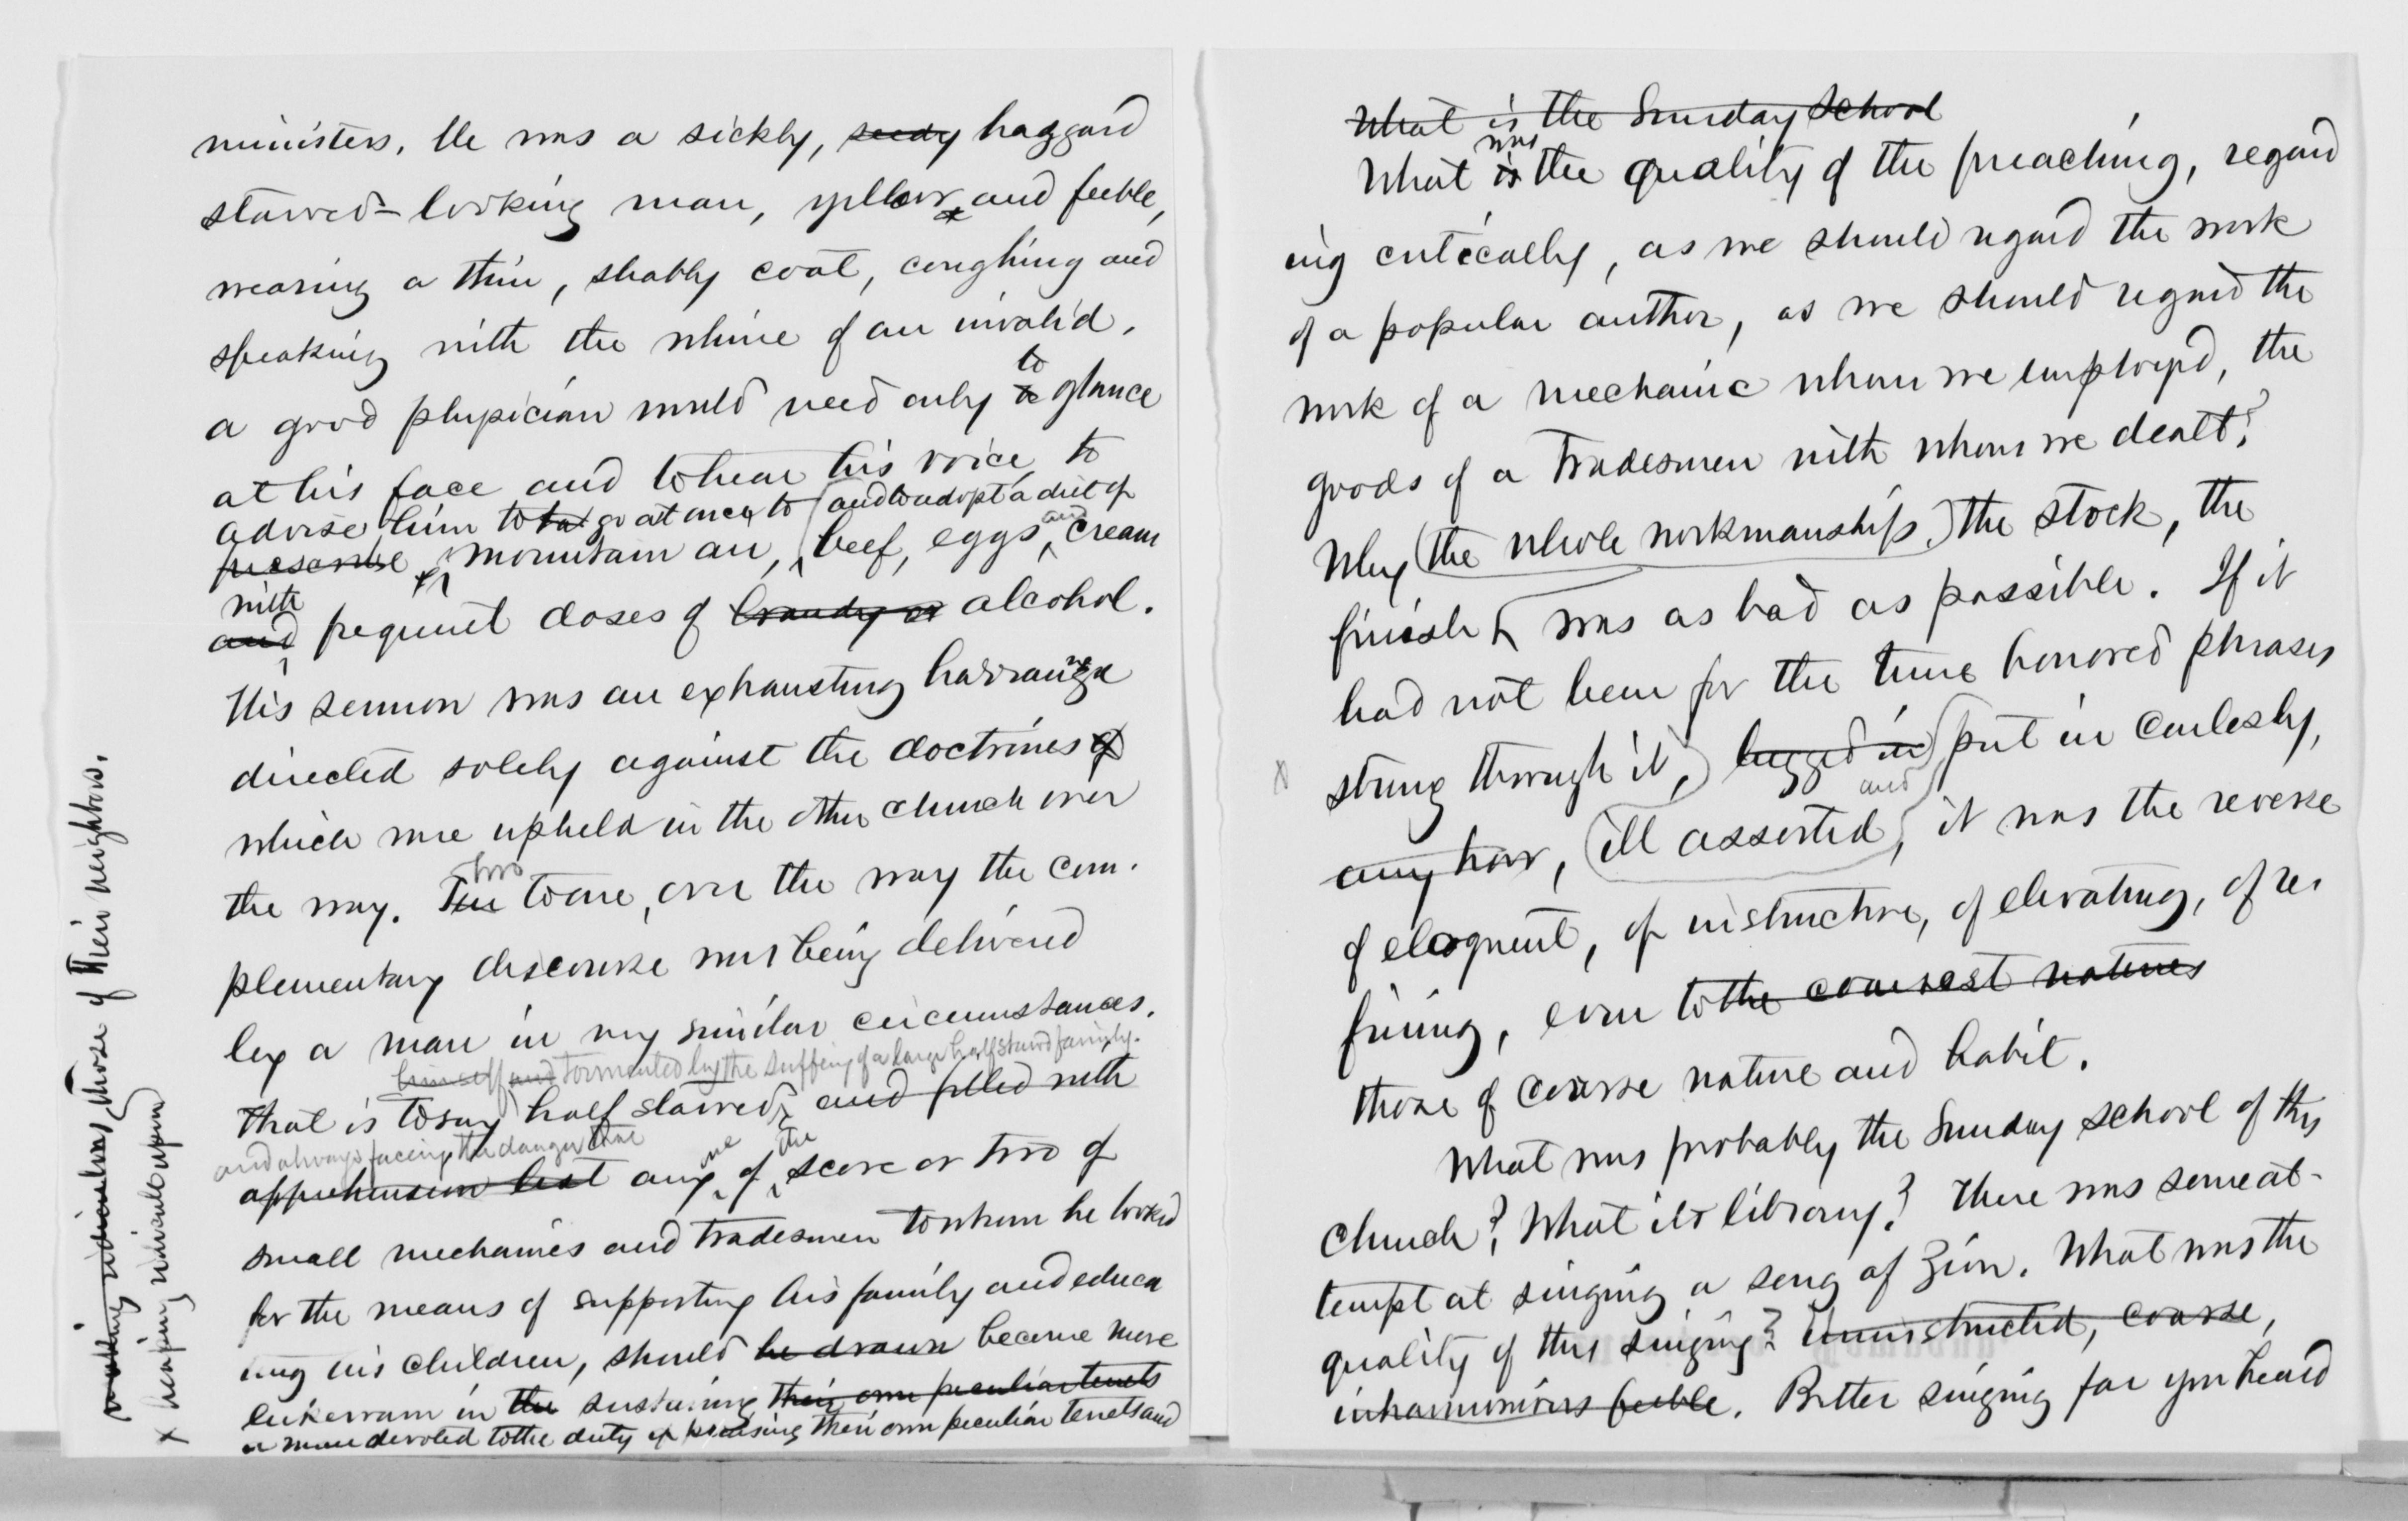 ministers. He was a sickly, seedy haggard
starved-looking man, yellow and feeble,
wearing a thin, shabby coat, coughing and
speaking with the whine of an invalid.
to
a good physician would need only to glance
at his face and to hear his voice, to
advise him to go at once to and to adopt a diet of
prescribe mountain air, beef, eggs and cream
with
and frequent doses of brandy or alcohol.
His sermon was an exhausting harrangue
directed solely against the doctrines of
which were upheld in the other church over
two
the way. Ten to one, over the way the com-
plementary discourse was being delivered
by a man in very similar circumstances.
himself and tormented by the suffering of a large half starved family.
that is to say half starved, and filled with
and always facing the danger that
one the
apprehension lest any of score or two of
small mechanics and tradesmen to whom he looked
for the means of supporting his family and educa
ting his children, should be drawn become more
lukewarm in the sustaining their own peculiar tenets
or more devoted to the duty of praising their own peculiar tenets and
making ridiculous those of their neighbors.
x heaping ridicule upon
What is the Sunday School
was
What is the quality of the preaching, regard
ing critically, as we should regard the work
of a popular author, as we should regard the
work of a mechanic whom we employed, the
goods of a Tradesmen with whom we dealt?
Why (the whole workmanship,) the stock, the
finish was as bad as possible. If it
had not been for the time honored phrases
x strung through it, lugged in put in carelessly,
and
any how, ill assorted, it was the reverse
of eloquent, of instructive, of elevating, of re-
fining, even to the coarsest natures
those of coarse nature and habit.
What was probably the Sunday school of this
Church? What its library? There was some at-
tempt at singing a song of Zion. What was the
quality of this singing? Uninstructed, coarse,
inharmonious feeble. Better singing far you heard